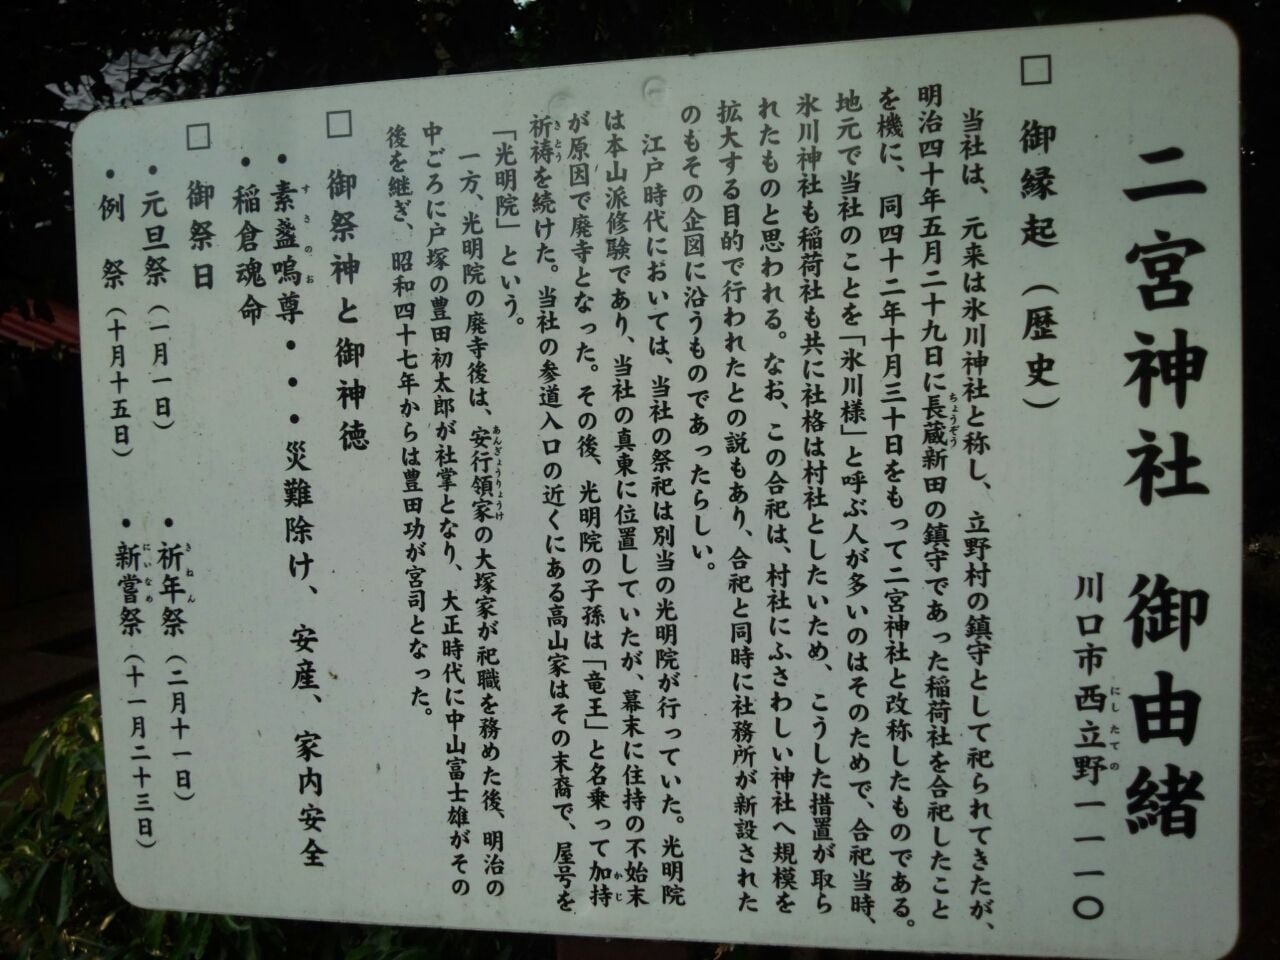 二宮神社 御由緒
川口市西立野一一一〇
にしたての
□ 御縁起(歴史)
当社は、元来は氷川神社と称し、立野村の鎮守として祀られてきたが、
明治四十年五月二十九日に長蔵新田の鎮守であった稲荷社を合祀したこと
ちょうぞう
を機に、同四十二年十月三十日をもって二宮神社と改称したものである。
地元で当社のことを「氷川様」と呼ぶ人が多いのはそのためで、合祀当時、
氷川神社も稲荷社も共に社格は村社としたいため、こうした措置が取ら
れたものと思われる。なお、この合祀は、村社にふさわしい神社へ規模を
拡大する目的で行われたとの説もあり、合祀と同時に社務所が新設された
のもその企図に沿うものであったらしい。
江戸時代においては、当社の祭祀は別当の光明院が行っていた。光明院
は本山派修験であり、当社の真東に位置していたが、幕末に住持の不始末
が原因で廃寺となった。その後、光明院の子孫は「竜王」と名乗って加持
かじ
祈祷を続けた。当社の参道入口の近くにある高山家はその末裔で、屋号を
きとう
「光明院」という。
一方、光明院の廃寺後は、安行領家の大塚家が祀職を務めた後、明治の
あんぎょうりょうけ
中ごろに戸塚の豊田初太郎が社掌となり、大正時代に中山富士雄がその
後を継ぎ、昭和四十七年からは豊田功が宮司となった。
□ 御祭神と御神徳
・素盞嗚尊・・・災難除け、安産、家内安全
すさのお
・稲倉魂命
□ 御祭日
・元旦祭(一月一日)
・祈年祭(二月十一日)
きねん
・例 祭(十月十五日)
・新嘗祭(十一月二十三日)
にいなめ